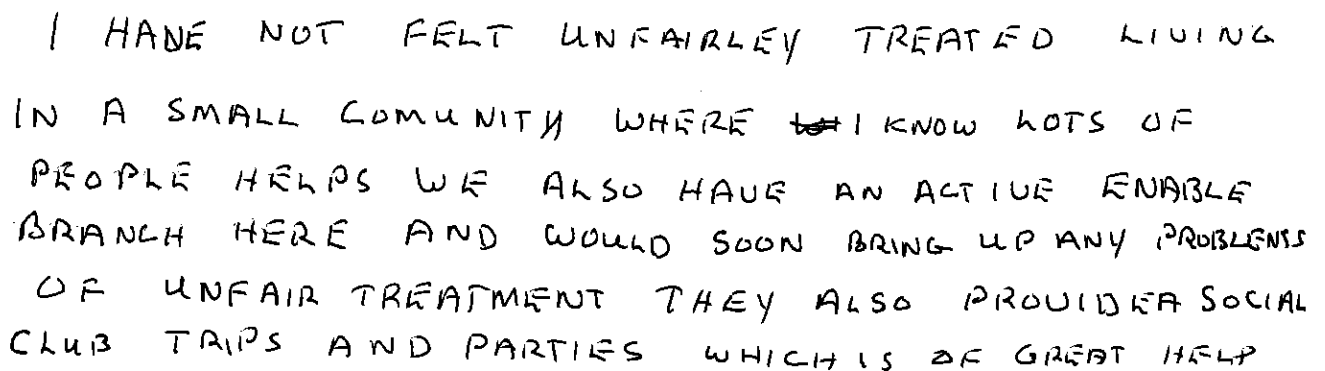 I HAVE NOT FELT UNFAIRLEY TREATED LIVING
IN A SMALL COMUNITY WHERE I KNOW LOTS OF
PEOPLE HELPS WE ALSO HAVE AN ACTIVE ENABLE
BRANCH HERE AND WOULD SOON BRING UP ANY PROBLEMS
OF UNFAIR TREATMENT THEY ALSO PROVIDE A SOCIAL
CLUB TRIPS AND PARTIES WHICH IS OF GREAT HELP